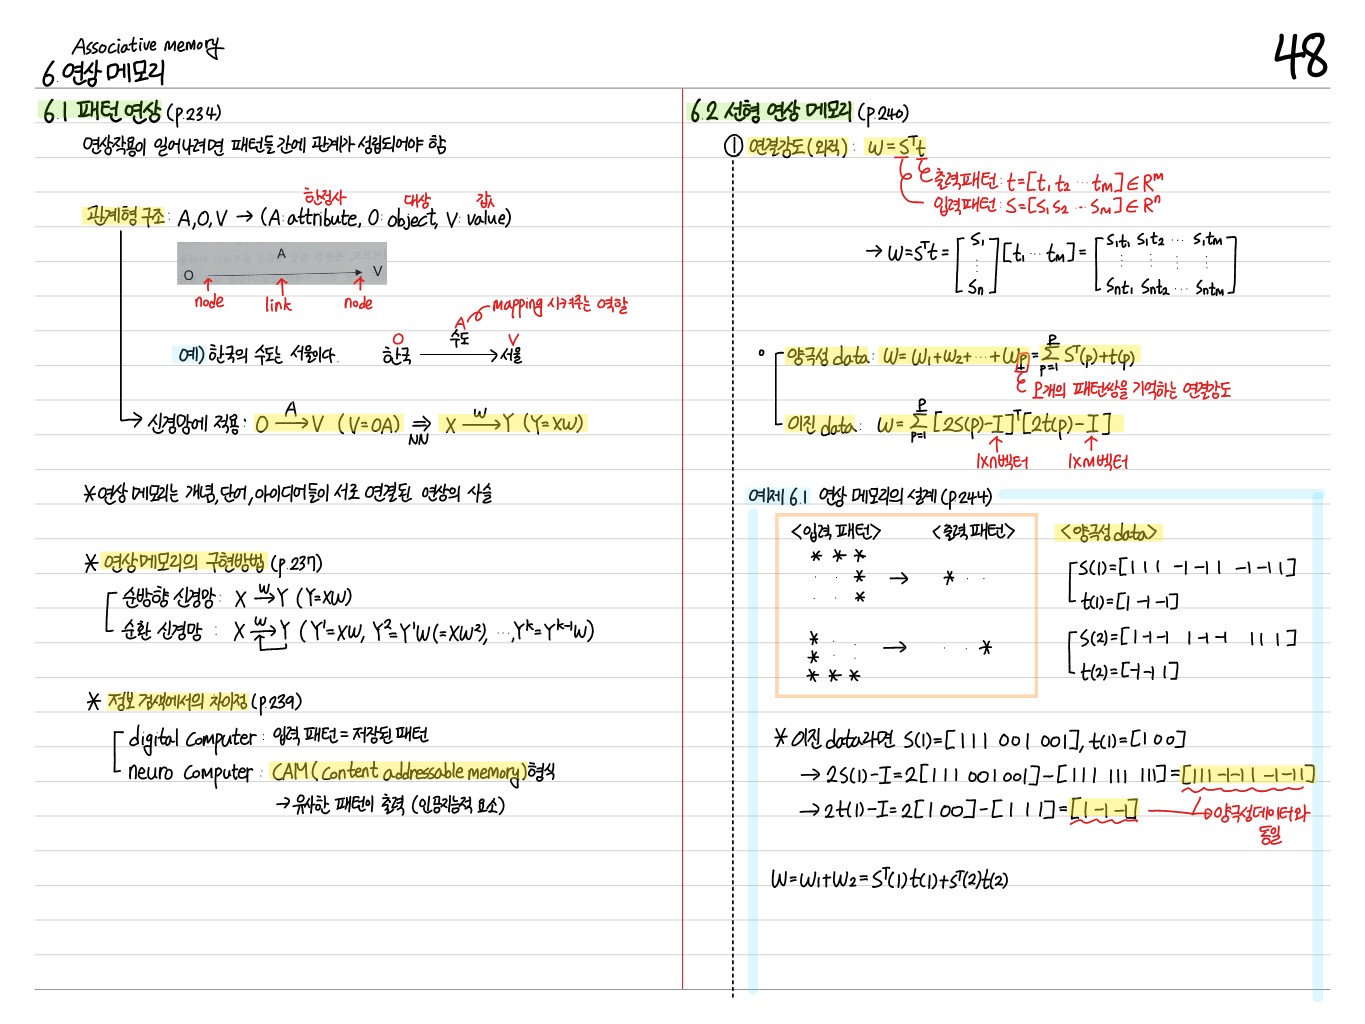 Associative memory
6. 연상 메모리
48
6.1 패턴 연상 (p.234)
연상작용이 일어나려면 패턴들 간에 관계가 성립되어야 함
한정사 대상 값
관계형 구조: A, O, V → (A: attribute, O: object, V: value)
A
O V
node link node
mapping 시켜주는 역할
O A V
예) 한국의 수도는 서울이다. 한국 수도 → 서울
→ 신경망에 적용: O —A→ V (V=OA) ⇒ NN X —w→ Y (Y=XW)
* 연상 메모리는 개념, 단어, 아이디어들이 서로 연결된 연상의 사슬
* 연상메모리의 구현방법 (p.237)
순방향 신경망: X —w→ Y (Y=XW)
순환 신경망: X —w→ Y (Y¹=XW, Y²=Y¹W(=XW²), ⋯, Yᵏ=Yᵏ⁻¹W)
* 정보 검색에서의 차이점 (p.239)
digital computer: 입력 패턴 = 저장된 패턴
neuro computer: CAM (content addressable memory) 형식
→ 유사한 패턴이 출력 (인공지능적 요소)
6.2 선형 연상 메모리 (p.240)
① 연결강도(외적): W=Sᵀt
출력패턴: t=[t₁ t₂ ⋯ tₘ]∈Rᵐ
입력패턴: S=[S₁ S₂ ⋯ Sₘ]∈Rⁿ
→ W=Sᵀt= [S₁ ⋮ Sₙ] [t₁ ⋯ tₘ] = [S₁t₁ S₁t₂ ⋯ S₁tₘ ⋮ ⋮ ⋮ ⋮ Sₙt₁ Sₙt₂ ⋯ Sₙtₘ]
양극성 data: W=W₁+W₂+⋯+Wp= Σ(p=1, P) Sᵀ(p)+t(p)
P개의 패턴쌍을 기억하는 연결강도
이진 data: W= Σ(p=1, P) [2S(p)-I]ᵀ[2t(p)-I]
1xn벡터 1xm벡터
예제 6.1 연상 메모리의 설계 (p.244)
<입력 패턴> <출력패턴> <양극성 data>
* * *
· · * → * · ·
· · *
S(1)=[1 1 1 -1 -1 1 -1 -1 1]
t(1)=[1 -1 -1]
* · ·
* · · → · · *
* * *
S(2)=[1 -1 -1 1 -1 -1 1 1 1]
t(2)=[-1 -1 1]
* 이진 data라면 S(1)=[111 001 001], t(1)=[100]
→ 2S(1)-I=2[111 001 001]-[111 111 111]=[111 -1-11 -1-11]
→ 2t(1)-I=2[100]-[111]=[1 -1 -1] → 양극성데이터와
동일
W=W₁+W₂=Sᵀ(1)t(1)+Sᵀ(2)t(2)